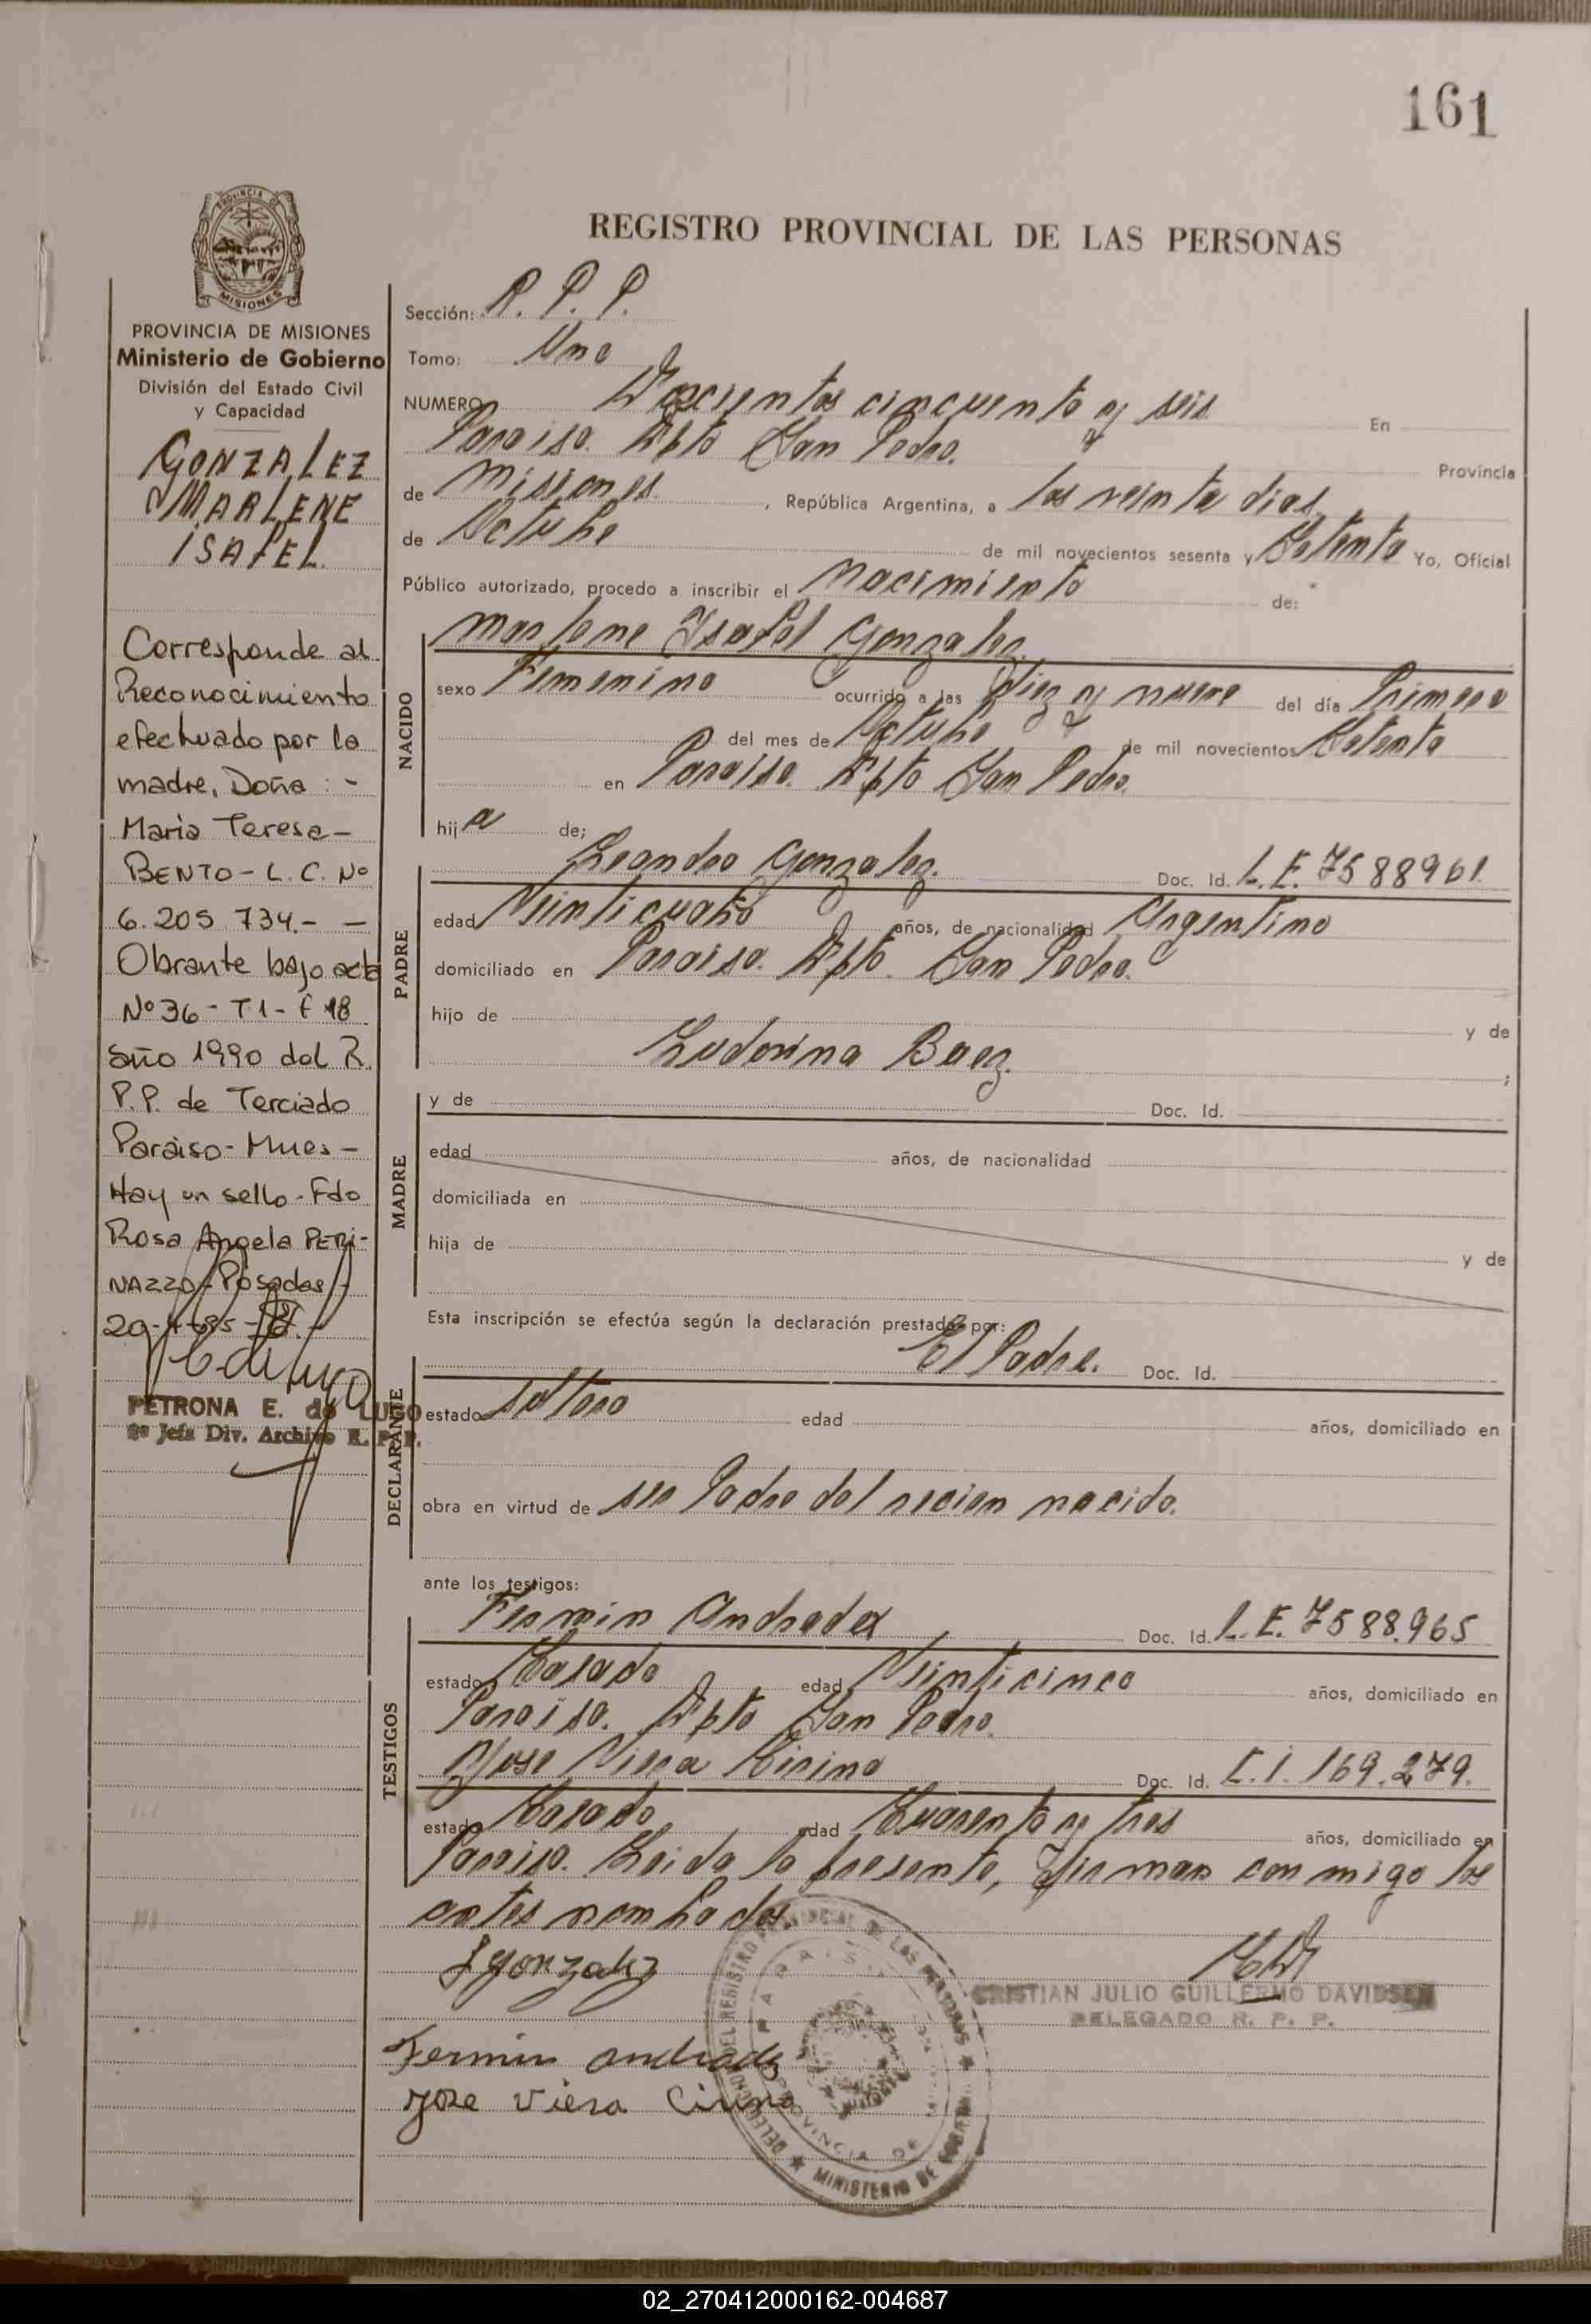 161
PROVINCIA DE
MISIONES
PROVINCIA DE MISIONES
Ministerio de Gobierno
División del Estado Civil
y Capacidad
GONZALEZ
MARLENE
ISABEL.
Corresponde al
Reconocimiento
efectuado por la
madre, Doña : -
Maria Teresa -
BENTO - L. C. Nº
6.205.734.- -
Obrante bajo acta
Nº 36 - T1 - F 18
año 1990 del R.
P.P. de Terciado
Paraiso - Mnes -
Hay un sello - Fdo
Rosa Angela PERI-
NAZZO - Posadas -
PETRONA E. de LUGO
2º Jefa Div. Archivo R. P. P.
REGISTRO PROVINCIAL DE LAS PERSONAS
Sección: R. P. P.
Tomo: Uno
NUMERO Doscientos cincuenta y seis En
Paraiso. Dpto San Pedro. Provincia
de Misiones. , República Argentina, a los veinte dias
de Octubre de mil novecientos sesenta y Setenta Yo, Oficial
Público autorizado, procedo a inscribir el nacimiento de:
NACIDO
Marlene Isabel Gonzalez.
sexo Femenino ocurrido a las diez y nueve del día Primero
del mes de Octubre de mil novecientos Setenta
en Paraiso. Dpto San Pedro.
hija de;
PADRE
Leandro Gonzalez. Doc. Id. L.E. 7588961.
edad Veinticuatro años, de nacionalidad Argentino
domiciliado en Paraiso. Dpto. San Pedro.
hijo de y de
Ludovina Baez. ;
MADRE
y de Doc. Id.
edad años, de nacionalidad
domiciliada en
hija de y de
Esta inscripción se efectúa según la declaración prestada por:
DECLARANTE
El Padre. Doc. Id.
estado soltero edad años, domiciliado en
obra en virtud de ser Padre del recien nacido.
ante los testigos:
TESTIGOS
Fermin Andrade Doc. Id. L.E. 7588.965
estado Casado edad Veinticinco años, domiciliado en
Paraiso. Dpto San Pedro.
Jose Viera Cirino Doc. Id. C.I. 169.279.
estado Casado edad Cuarenta y tres años, domiciliado en
Paraiso. Leida la presente, firman conmigo los
antes nombrados.
L Gonzalez
CRISTIAN JULIO GUILLERMO DAVIDSEN
DELEGADO R. P. P.
Fermin Andrade
Jose Viera Cirino
DELEGACION DEL REGISTRO PROVINCIAL DE LAS PERSONAS
PARAISO
PROVINCIA DE
MINISTERIO DE GOBIERNO
02_270412000162-004687